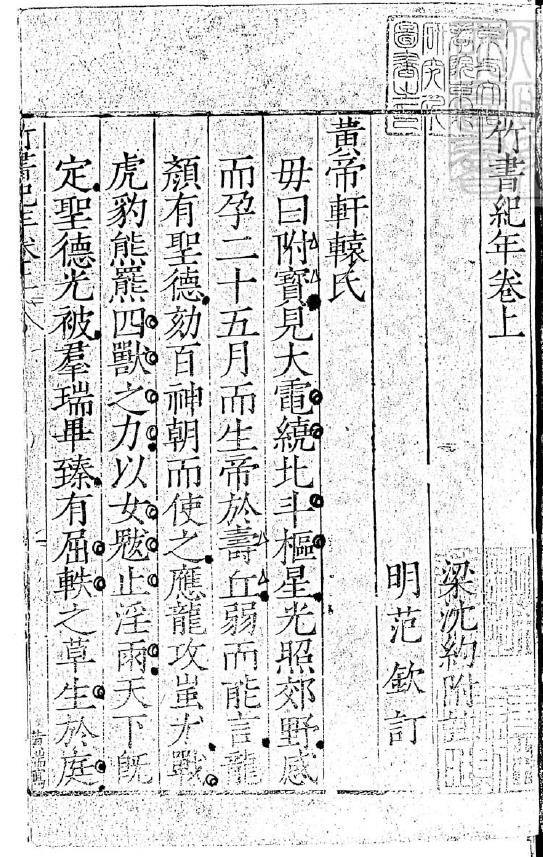 竹書紀年卷上
梁沈約附註
明范欽訂
黃帝軒轅氏
母曰附寶見大電繞北斗樞星光照郊野感
而孕二十五月而生帝於壽丘弱而能言龍
顏有聖德劾百神朝而使之應龍攻蚩尤戰
虎豹熊羆四獸之力以女魃止淫雨天下既
定聖德光被羣瑞畢臻有屈軼之草生於庭
竹書紀年卷上